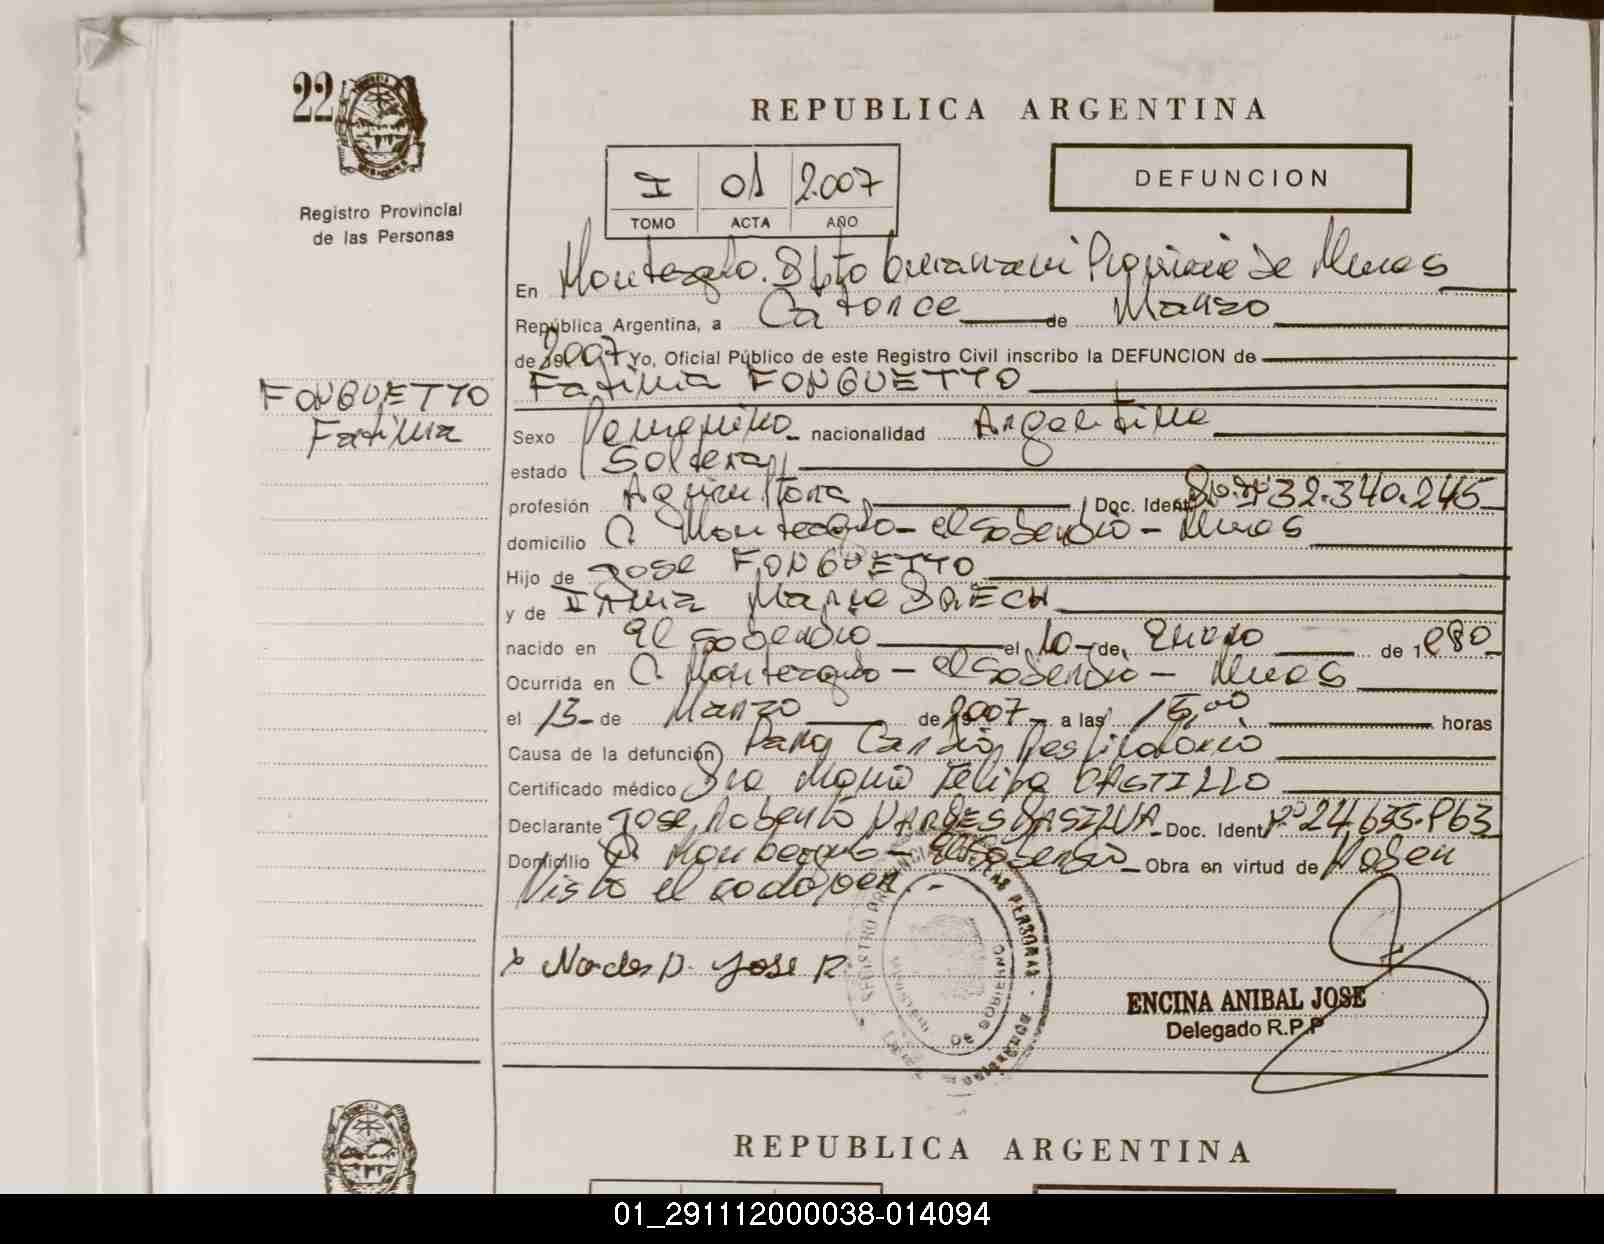 22
Registro Provincial
de las Personas
REPUBLICA ARGENTINA
I 01 2.007
TOMO ACTA AÑO
DEFUNCION
En Monteagudo. Dpto Guarani Provincia de Mnes
República Argentina, a Catorce de Marzo
de 2007 Yo, Oficial Público de este Registro Civil inscribo la DEFUNCION de
Fatima FONGUETTO
FONGUETTO
Fatima
Sexo Femenino nacionalidad Argentina
estado Soltera
profesión Agricultora Doc. Ident 32.340.245
domicilio Monteagudo - el Soberbio - Mnes
Hijo de Jose FONGUETTO
y de Irma Maria
nacido en El Soberbio el 10 de Enero de 1980
Ocurrida en Monteagudo - el Soberbio - Mnes
el 13 de Marzo de 2007 a las 15,00 horas
Causa de la defunción Paro Cardio Respiratorio
Certificado médico Dra Maria Felipa CASTILLO
Declarante Jose Roberto DASILVA Doc. Ident 24.633.963
Domicilio Monteagudo - El Soberbio Obra en virtud de Haber
Visto el cadaver.-
Jose R
REGISTRO PROVINCIAL DE LAS PERSONAS
DE GOBIERNO
ENCINA ANIBAL JOSE
Delegado R.P.P
REPUBLICA ARGENTINA
01_291112000038-014094